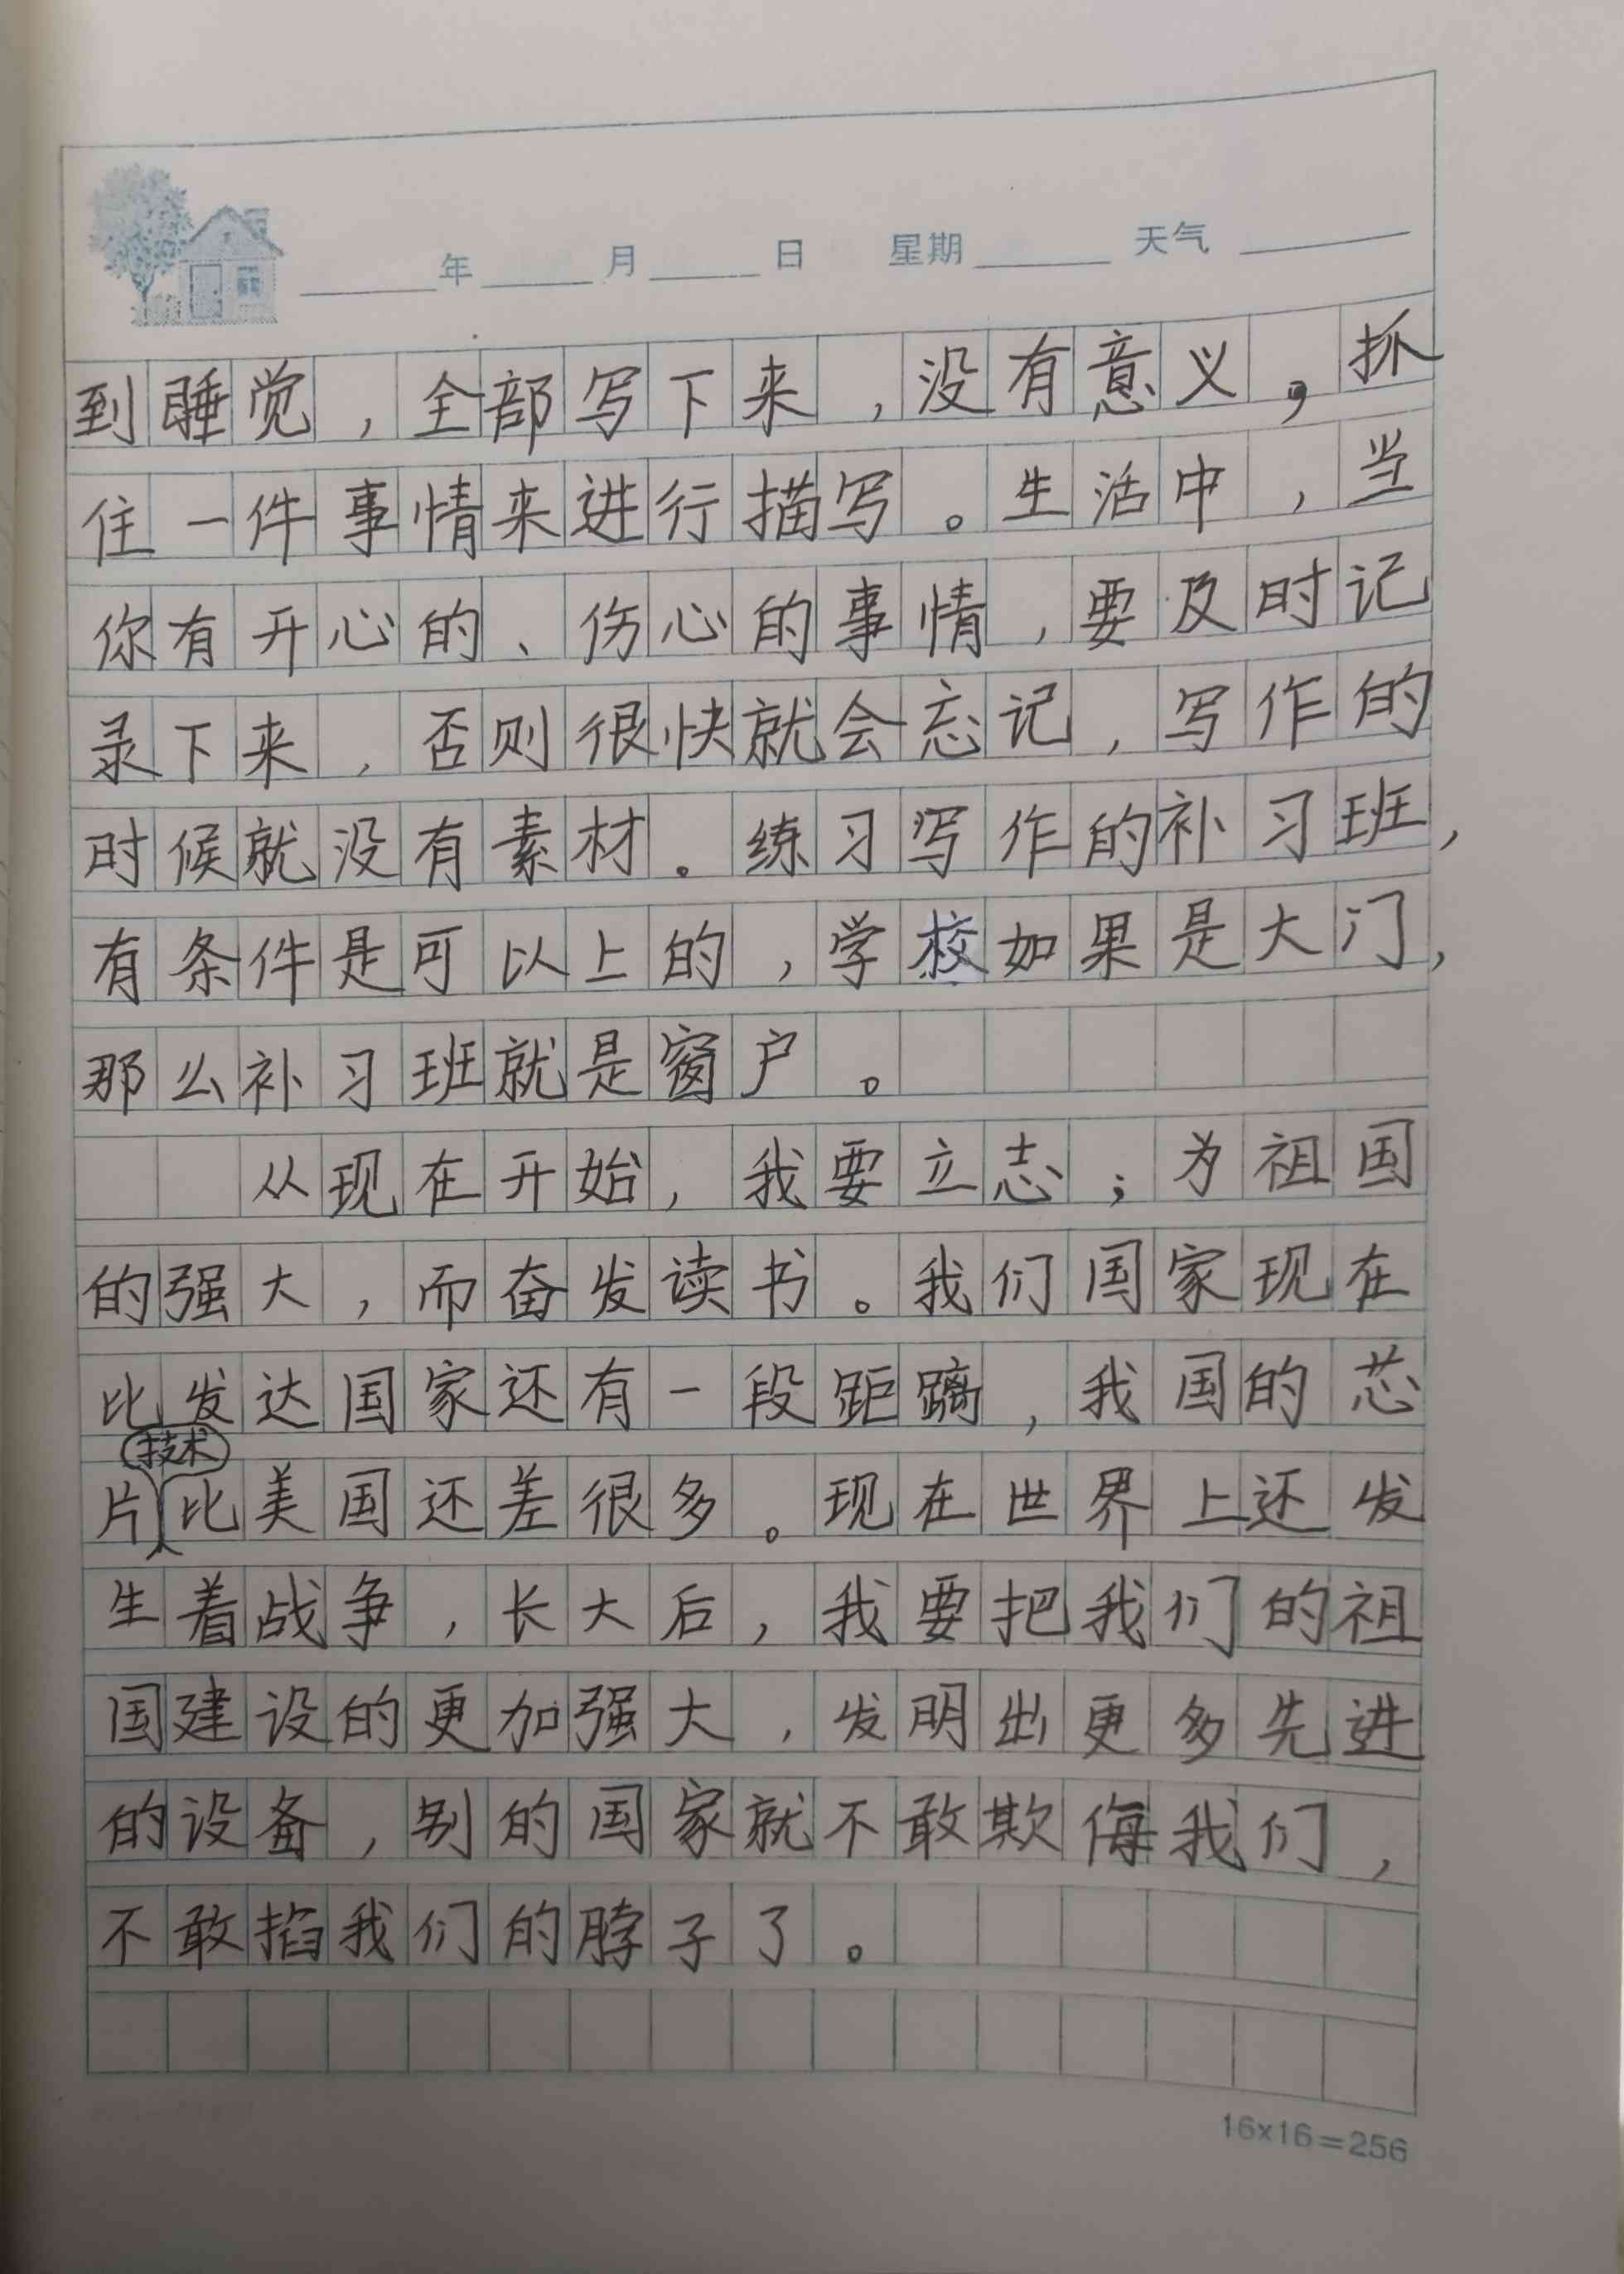 年 月 日 星期 天气
到睡觉，全部写下来，没有意义，抓
住一件事情来进行描写。生活中，当
你有开心的、伤心的事情，要及时记
录下来，否则很快就会忘记，写作的
时候就没有素材。练习写作的补习班，
有条件是可以上的，学校如果是大门，
那么补习班就是窗户。
从现在开始，我要立志；为祖国
的强大，而奋发读书。我们国家现在
比发达国家还有一段距离，我国的芯
片技术比美国还差很多。现在世界上还发
生着战争，长大后，我要把我们的祖
国建设的更加强大，发明出更多先进
的设备，别的国家就不敢欺侮我们，
不敢掐我们的脖子了。
16×16=256